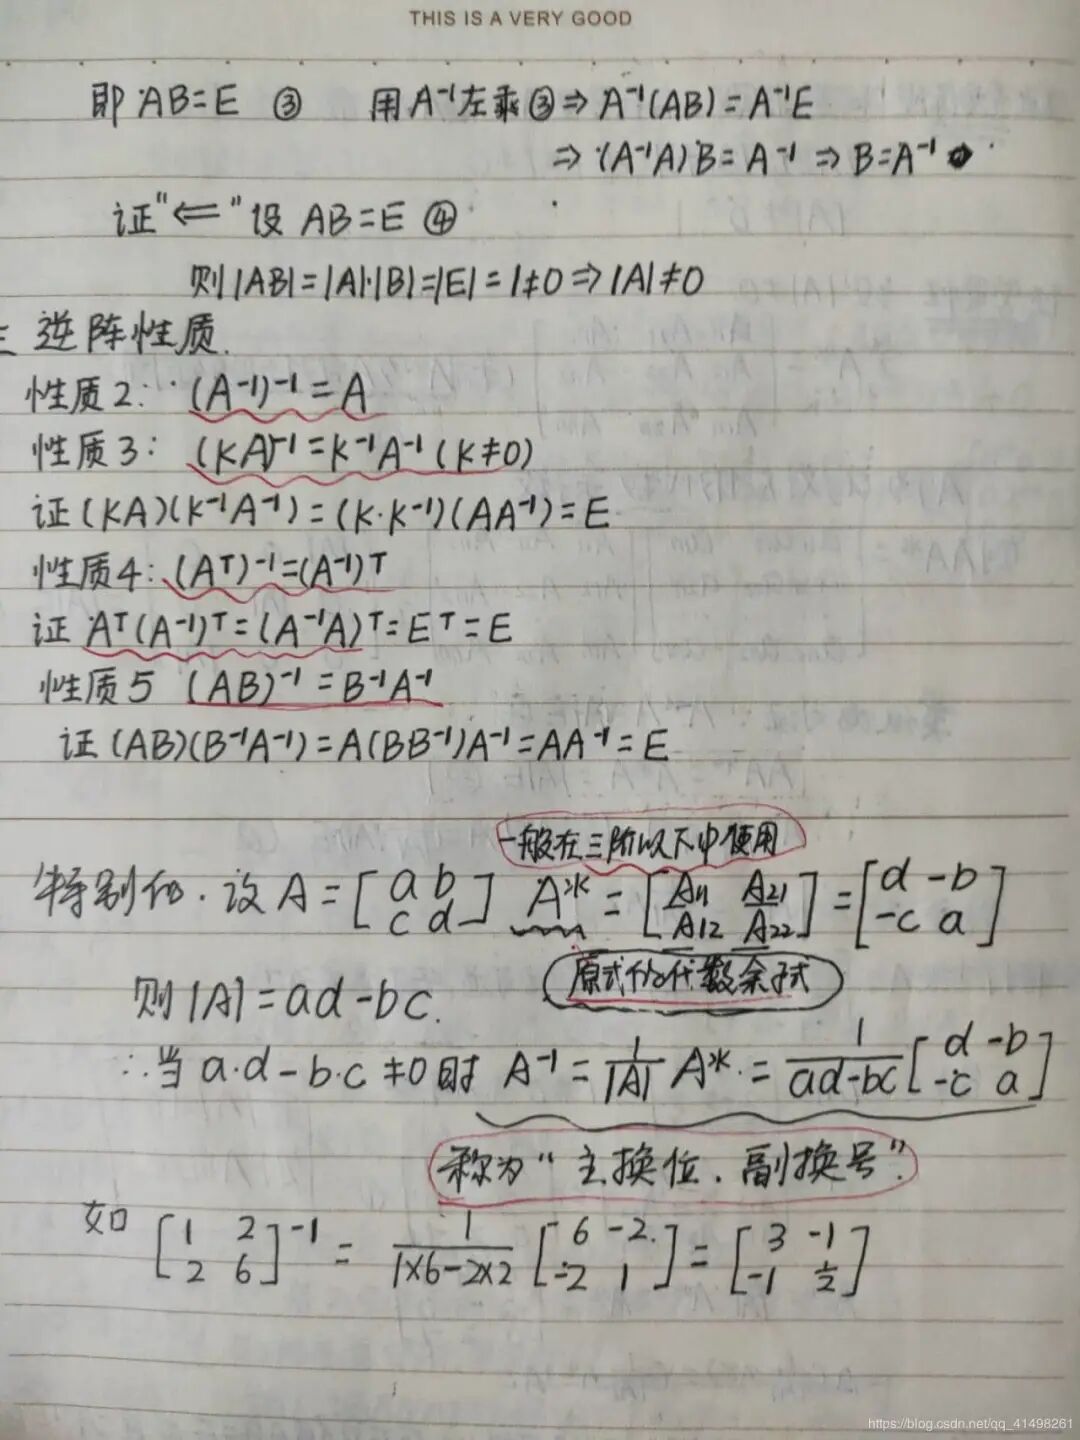 THIS IS A VERY GOOD
即 AB=E ③ 用A⁻¹左乘③⇒ A⁻¹(AB)=A⁻¹E
⇒(A⁻¹A)B=A⁻¹⇒B=A⁻¹
证"⇐"设 AB=E ④
则|AB|=|A|·|B|=|E|=1≠0⇒|A|≠0
逆阵性质.
性质2: (A⁻¹)⁻¹=A
性质3: (KA)⁻¹=K⁻¹A⁻¹(K≠0)
证(KA)(K⁻¹A⁻¹)=(K·K⁻¹)(AA⁻¹)=E
性质4: (Aᵀ)⁻¹=(A⁻¹)ᵀ
证 Aᵀ(A⁻¹)ᵀ=(A⁻¹A)ᵀ=Eᵀ=E
性质5 (AB)⁻¹=B⁻¹A⁻¹
证(AB)(B⁻¹A⁻¹)=A(BB⁻¹)A⁻¹=AA⁻¹=E
一般在三阶以下中使用
特别的.设A=[a b; c d] A*=[A11 A21; A12 A22]=[d -b; -c a]
原式的代数余子式
则|A|=ad-bc.
∴当a·d-b·c≠0时 A⁻¹=1/|A| A*=1/(ad-bc)[d -b; -c a]
称为"主换位.副换号".
如 [1 2; 2 6]⁻¹=1/(1×6-2×2)[6 -2; -2 1]=[3 -1; -1 1/2]
https://blog.csdn.net/qq_41498261